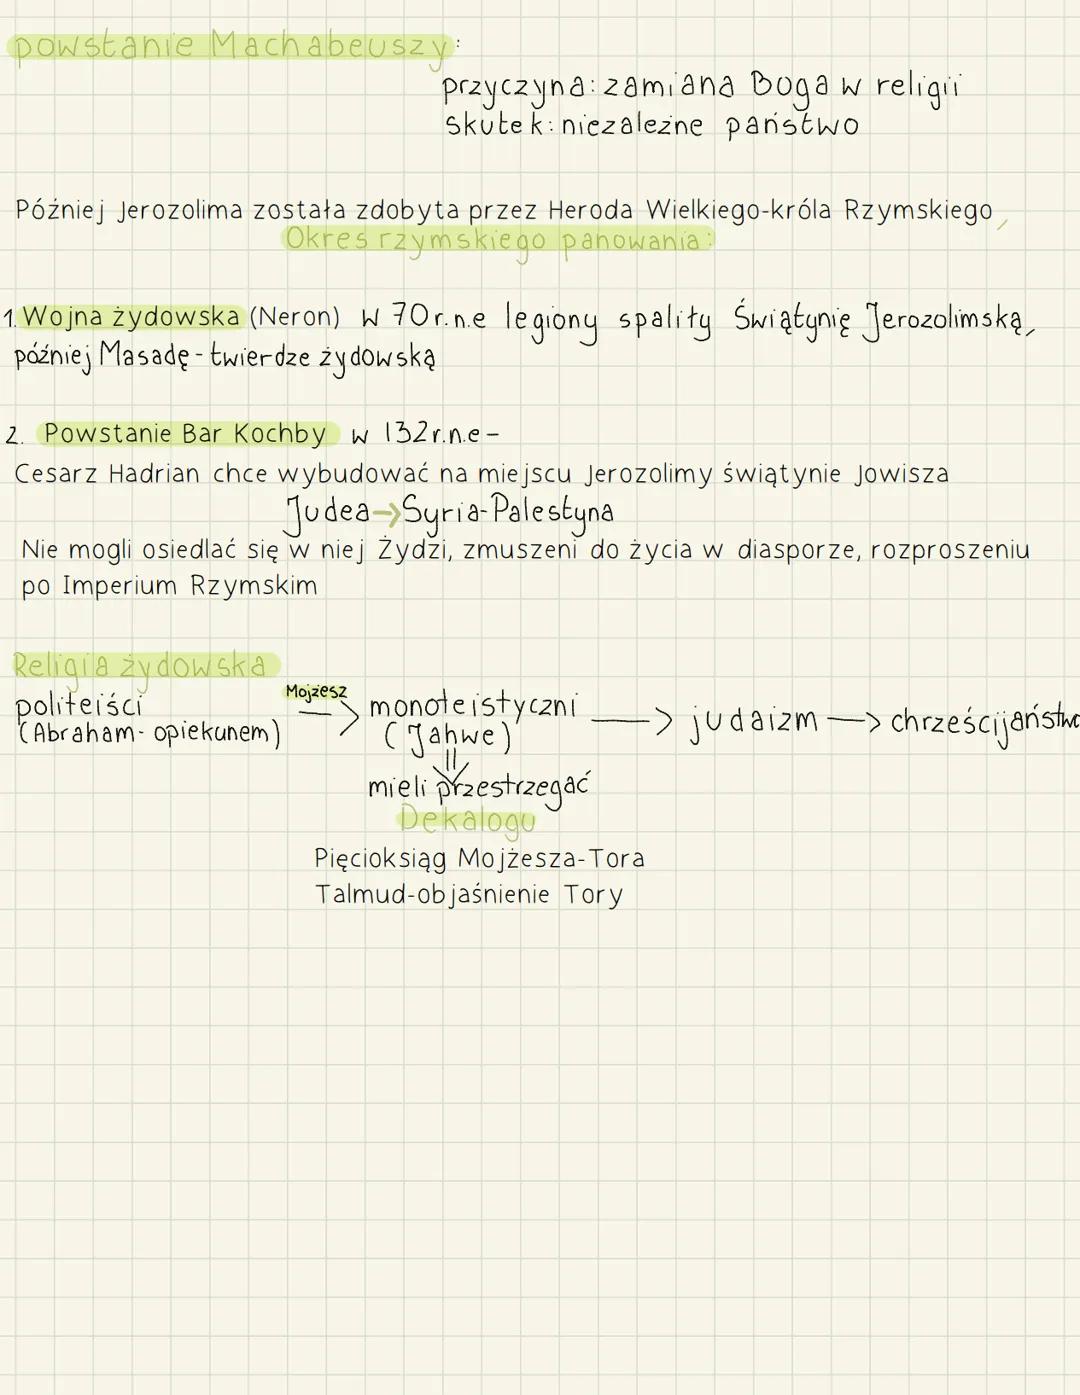 powstanie Machabeuszy:
przyczyna: zamiana Boga w religii
skutek: niezależne państwo
Później Jerozolima została zdobyta przez Heroda Wielkiego-króla Rzymskiego
Okres rzymskiego panowania:
1. Wojna żydowska (Neron) w 70r.n.e legiony spaliły Świątynię Jerozolimską,
później Masadę - twierdze żydowską
2. Powstanie Bar Kochby w 132r.n.e -
Cesarz Hadrian chce wybudować na miejscu Jerozolimy świątynie Jowisza
Judea → Syria-Palestyna
Nie mogli osiedlać się w niej Żydzi, zmuszeni do życia w diasporze, rozproszeniu
po Imperium Rzymskim
Religia żydowska
politeiści Mojżesz → monoteistyczni → judaizm → chrześcijaństwo
(Abraham- opiekunem) (Jahwe)
mieli przestrzegać
Dekalogu
Pięcioksiąg Mojżesza-Tora
Talmud-objaśnienie Tory